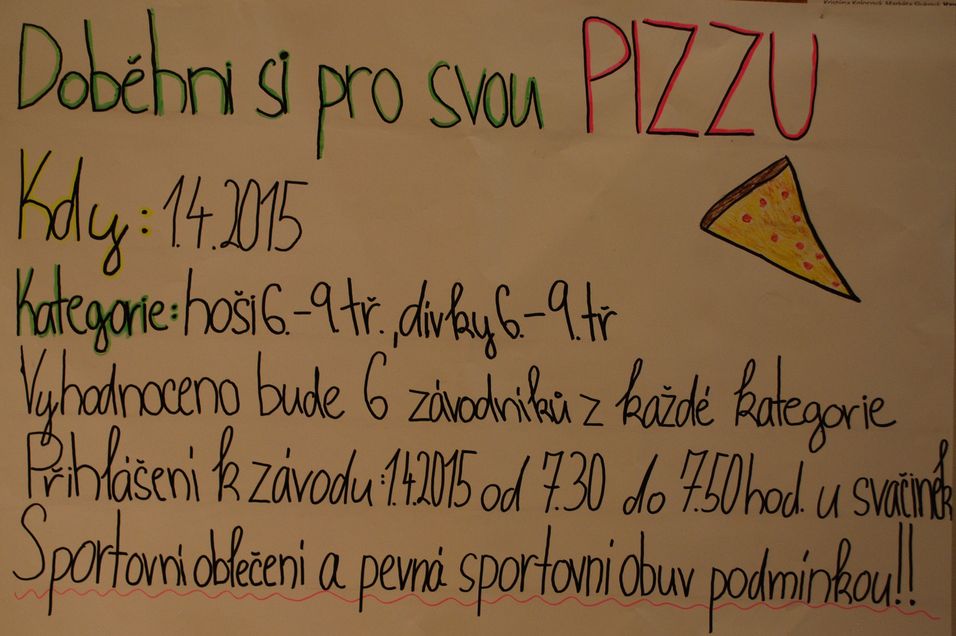 Doběhni si pro svou PIZZU
Kdy: 1.4.2015
Kategorie: hoši 6.-9.tř., dívky 6.-9.tř
Vyhodnoceno bude 6 závodníků z každé kategorie
Přihlášení k závodu: 1.4.2015 od 7.30 do 7.50 hod. u svačinek
Sportovní oblečení a pevná sportovní obuv podmínkou!!